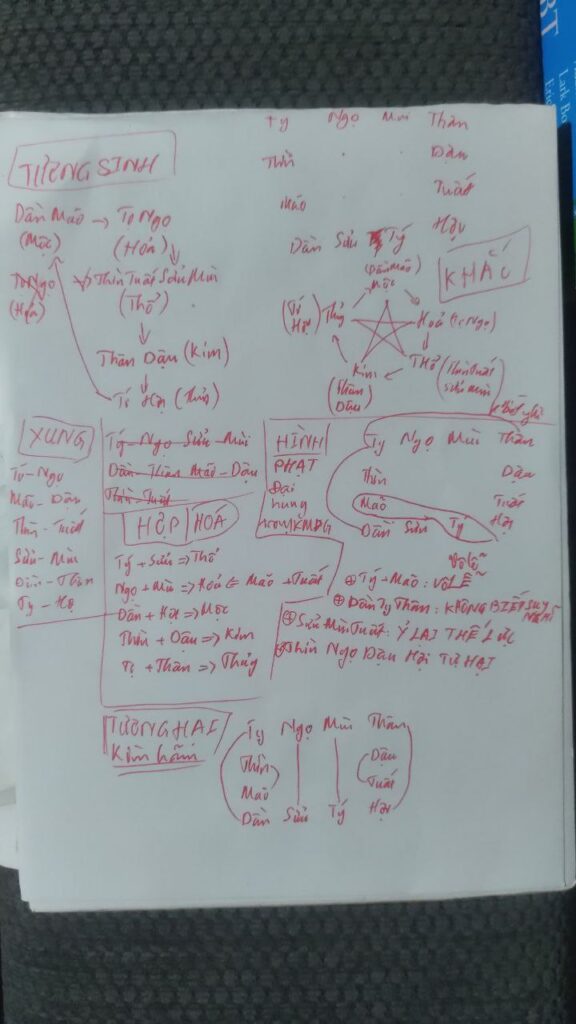 BT
Lark Bo
Eric
Tỵ Ngọ Mùi Thân
TƯƠNG SINH
Thìn Dậu
Mão Tuất
Hợi
Dần Sửu Tý
Dần Mão → Tỵ Ngọ
(Mộc) (Hỏa)
Tỵ Ngọ Thìn Tuất Sửu Mùi
(Hỏa) (Thổ)
Thân Dậu (Kim)
Tí Hợi (Thủy)
KHẮC
(Dần Mão)
Mộc
(Tí Hợi) Thủy
Hoả (Tỵ Ngọ)
Kim
(Thân Dậu)
Thổ (Thìn Tuất
Sửu Mùi)
XUNG
Tý - Ngọ
Mão - Dậu
Thìn - Tuất
Sửu - Mùi
Dần - Thân
Tỵ - Hợ
Tý - Ngọ Sửu - Mùi
Dần - Thân Mão - Dậu
Thìn - Tuất
HỢP HOÁ
Tý + Sửu => Thổ
Ngọ + Mùi => Hoả <= Mão + Tuất
Dần + Hợi => Mộc
Thìn + Dậu => Kim
Tị + Thân => Thủy
HÌNH
PHẠT
Đại
hung
Tỵ Ngọ Mùi Thân
Thìn Dậu
Mão Tuất
Dần Sửu Tý Hợi
Vô lễ
⊕ Tý + Mão: VÔ LỄ
⊕ Dần Tỵ Thân: KHÔNG BIẾT SUY NGHĨ
⊕ Sửu Mùi Tuất: Ỷ LẠI THẾ LỰC
⊕ Thìn Ngọ Dậu Hợi TỰ HẠI
TƯƠNG HẠI
Kìm hãm
Tỵ Ngọ Mùi Thân
Thìn Dậu
Mão Tuất
Dần Sửu Tý Hợi